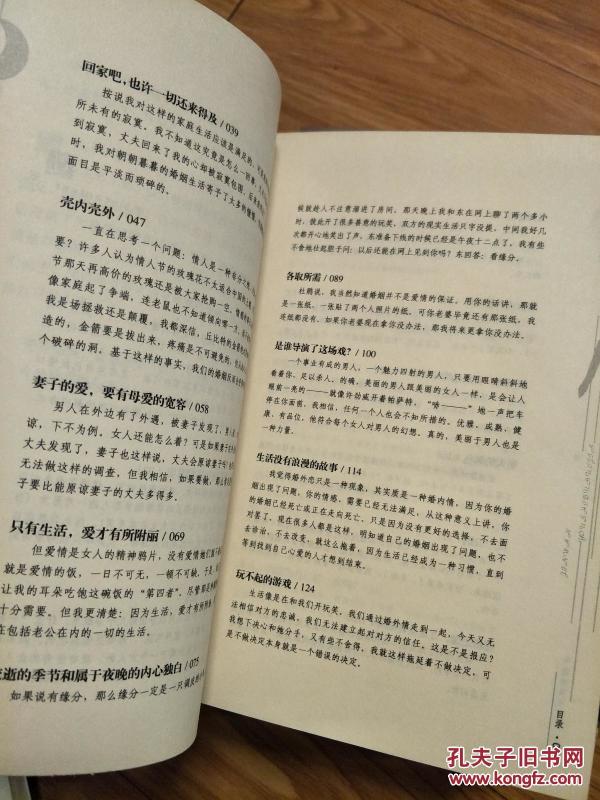 回家吧，也许一切还来得及 / 039
按说我对这样的家庭生活应该是满足的，
所未有的寂寞。我不知道这究竟是怎么一回事，
到寂寞，丈夫回来了我的心却被寂寞包围，后来
时，我对朝朝暮暮的婚姻生活寄予了太多的憧憬，
面目是平淡而琐碎的。
壳内壳外 / 047
一直在思考一个问题：情人是一种
要？许多人认为情人节的玫瑰花不大适合中国
节那天再高价的玫瑰还是被大家抢购一空，
像家庭起了争端，连老鼠也不知道倾向哪一
我是场拯救还是颠覆，我都深信，丘比特的金箭
造的，金箭要是拔出来，疼痛是不可避免的，
个破碎的洞。基于这样的事实，我们的婚姻
妻子的爱，要有母爱的宽容 / 058
男人在外边有了外遇，被妻子发现了，
谅，下不为例。女人还能怎么着？可是如果妻子
丈夫发现了，妻子也这样说，丈夫会原谅妻子
无法做这样的调查，但我相信，如果要做，那么
子要比能原谅妻子的丈夫多得多。
只有生活，爱才有所附丽 / 069
但爱情是女人的精神鸦片，没有爱情她们
就是爱情的饭，一日不可无，一顿不可缺，于是，
让我的耳朵吃饱这碗饭的“第四者”。尽管那都是
十分需要。但我更清楚：因为生活，爱才有所附丽，
在包括老公在内的一切的生活。
逝的季节和属于夜晚的内心独白 / 075
如果说有缘分，那么缘分一定是一只调皮
候就趁人不注意溜进了房间。那天晚上我和东在网上聊了两个多小
时，彼此开了很多善意的玩笑，双方的现实生活只字没提，中间我好几
次都开心地笑出了声。东准备下线的时候已经是午夜十二点了，我有些
不舍地壮起胆子问：以后还能在网上见到你吗？东回答：看缘分。
各取所需 / 089
杜鹃说，我当然知道婚姻并不是爱情的保证。用你的话讲，那就
是一张纸，一张贴了两个人照片的纸。可你老婆毕竟还有那张纸，我
连纸都没有。如果你老婆现在拿你没办法，那我将来更拿你没办法。
是谁导演了这场戏？ / 100
一个事业有成的男人，一个魅力四射的男人，只要用眼睛斜斜地
看着你，足以杀人。的确，美丽的男人跟美丽的女人一样，是会让人
眼前一亮的——就像许劲威开着帕萨特，“哧——”地一声把车
停在你面前，我相信，任何一个人也会不知所措的。优雅，成熟，健
康，有品位，他符合每个女人对男人的幻想。真的，美丽于男人也是
一种力量。
生活没有浪漫的故事 / 114
我觉得婚外恋只是一种现象，其实质是一种婚内情，因为你的婚
姻出现了问题，你的情感，需要已经无法满足，从这种意义上讲，你
的婚姻已经死亡或正在走向死亡，只是因为没有更好的选择，不去面
对罢了，现在很多人都是这样，明知道自己的婚姻出现了问题，也不
去诊治，不去改变，就这么拖着，因为生活已经成为一种习惯，直到
等到找到自己心爱的人才想到结束。
玩不起的游戏 / 124
生活像是在和我们开玩笑，我们通过婚外情走到一起，今天又无
法相信对方的忠诚，我们无法建立起对对方的信任，这是不是报应？
我想下决心和她分手，又有些不舍得，我就这样拖延着不做决定，可
是不做决定本身就是一个错误的决定。
目录·
孔夫子旧书网
www.kongfz.com